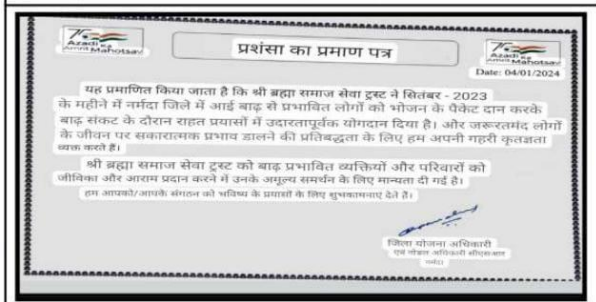 Azadi Ka
Amrit Mahotsav
प्रशंसा का प्रमाण पत्र
Azadi Ka
Amrit Mahotsav
Date: 04/01/2024
यह प्रमाणित किया जाता है कि श्री ब्रह्मा समाज सेवा ट्रस्ट ने सितंबर - 2023
के महीने में नर्मदा जिले में आई बाढ़ से प्रभावित लोगों को भोजन के पैकेट दान करके
बाढ़ संकट के दौरान राहत प्रयासों में उदारतापूर्वक योगदान दिया है। और जरूरतमंद लोगों
के जीवन पर सकारात्मक प्रभाव डालने की प्रतिबद्धता के लिए हम अपनी गहरी कृतज्ञता
व्यक्त करते हैं।
श्री ब्रह्मा समाज सेवा ट्रस्ट को बाढ़ प्रभावित व्यक्तियों और परिवारों को
जीविका और आराम प्रदान करने में उनके अमूल्य समर्थन के लिए मान्यता दी गई है।
हम आपको/आपके संगठन को भविष्य के प्रयासों के लिए शुभकामनाएं देते हैं।
जिला योजना अधिकारी
एवं नोडल अधिकारी सीएसआर
नर्मदा